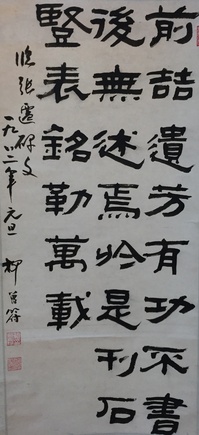 前喆遺芳有功不書
後無述焉於是刊石
豎表銘勒萬載
臨張遷碑文
一九八二年元旦 柳曾符